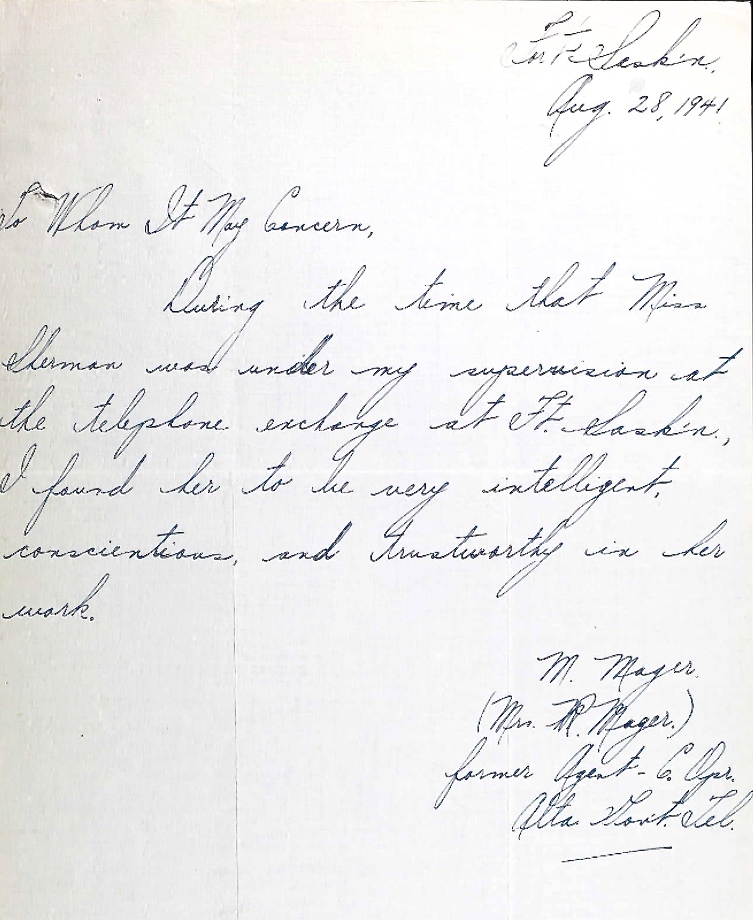 Fort Sask'n.
Aug. 28, 1941
To Whom It May Concern,
During the time that Miss
Sherman was under my supervision at
the telephone exchange at Ft. Sask'n.,
I found her to be very intelligent,
conscientious, and trustworthy in her
work.
M. Mager.
(Mrs. R. Mager.)
former Agent - C. Opr.
Alta. Govt. Tel.